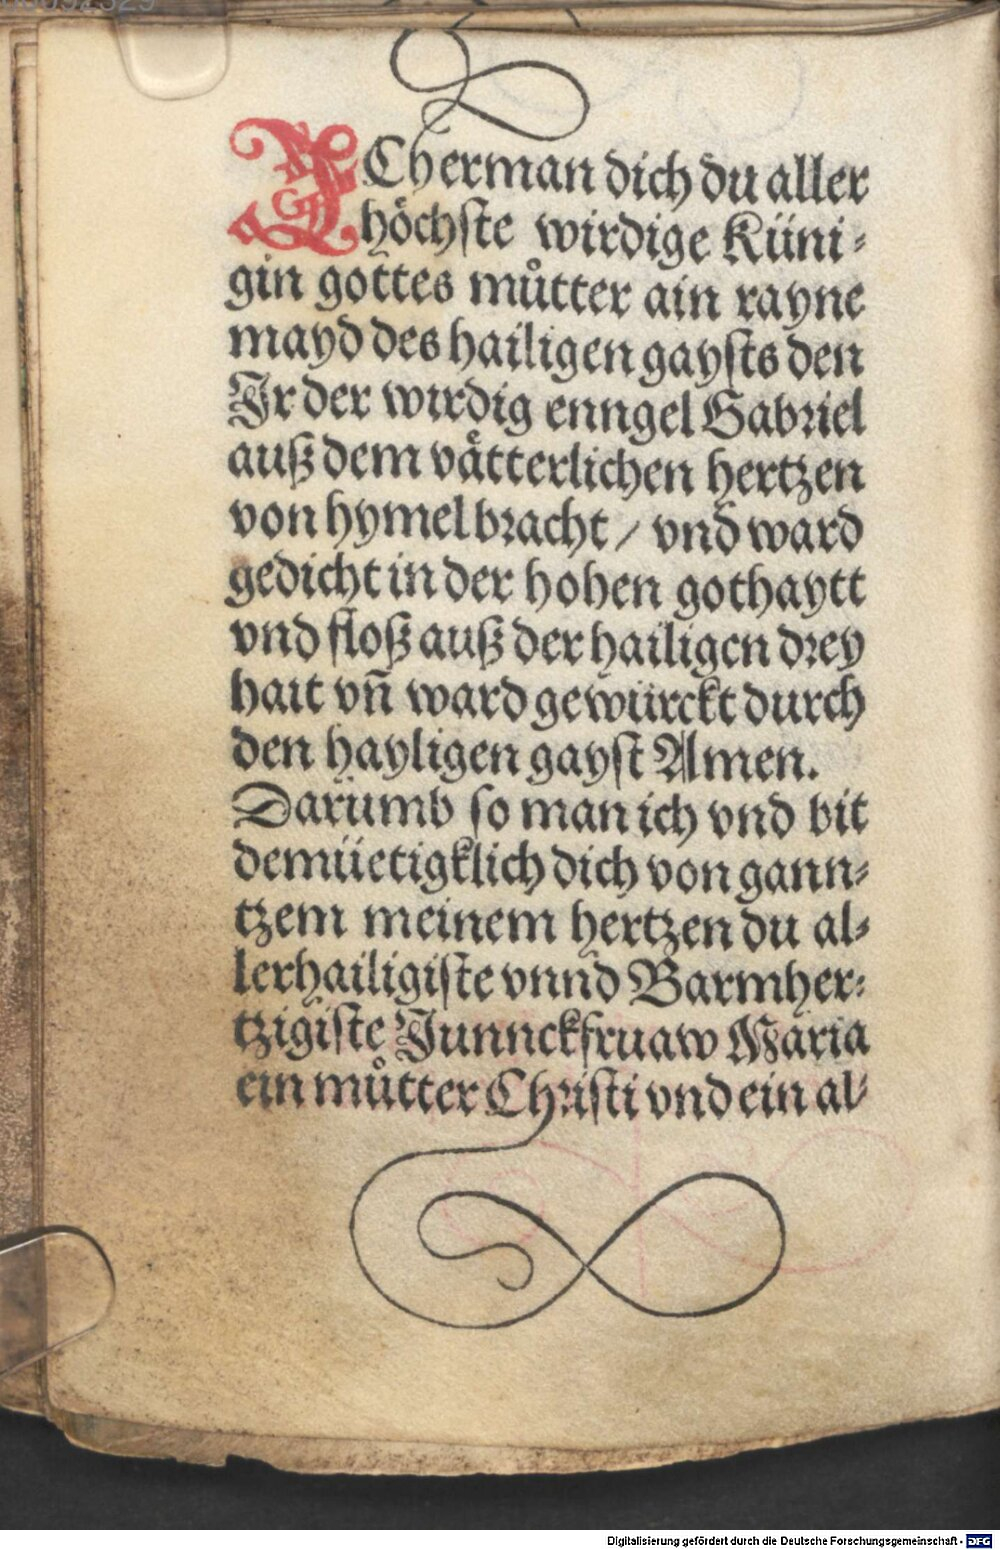 ICh erman dich du aller
höchste wirdige Küni-
gin gottes můtter ain rayne
mayd des hailigen gaysts den
Ir der wirdig enngel Gabriel
auß dem vätterlichen hertzen
von hymel bracht / vnd ward
gedicht in der hohen gothaytt
vnd floß auß der hailigen drey
hait vñ ward gewürckt durch
den hayligen gayst Amen.
Darumb so man ich vnd bit
demüetigklich dich von gann-
tzem meinem hertzen du al-
lerhailigiste vnnd Barmher-
tzigiste Junnckfruaw Maria
ein můtter Christi vnd ein al-
Digitalisierung gefördert durch die Deutsche Forschungsgemeinschaft - DFG